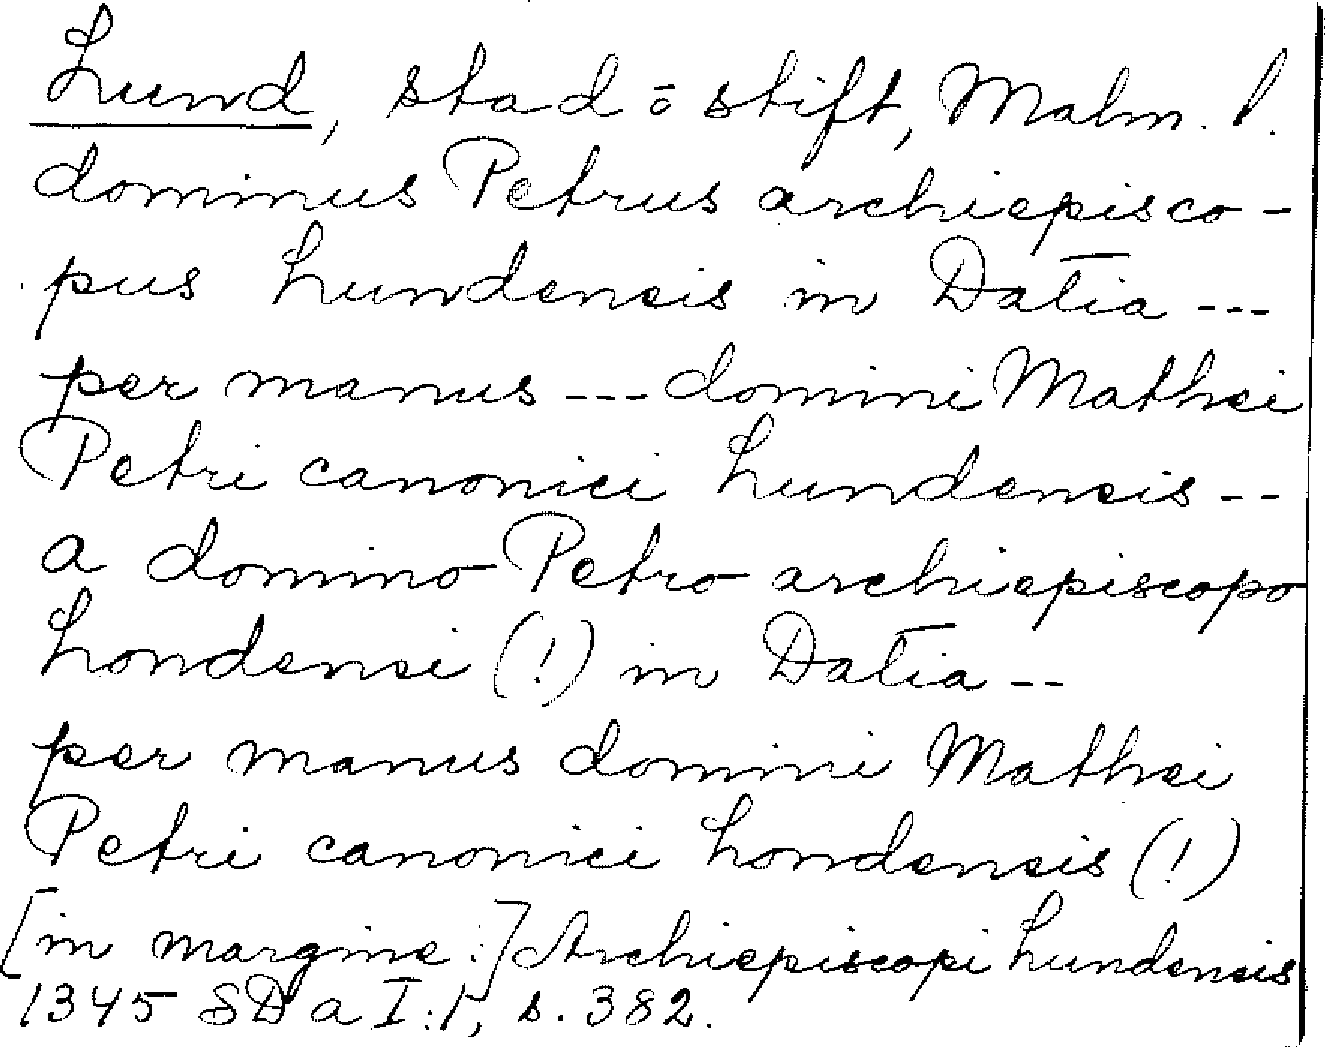 Lund, stad o stift, Malm. l.
dominus Petrus archiepisco-
pus Lundensis in Datia ---
per manus --- domini Mathei
Petri canonici Lundensis --
a domino Petro archiepiscopo
Londensi (!) in Datia --
per manus domini Mathei
Petri canonici Londensis (!)
[in margine:] Archiepiscopi Lundensis
1345 SD a I:1, s. 382.